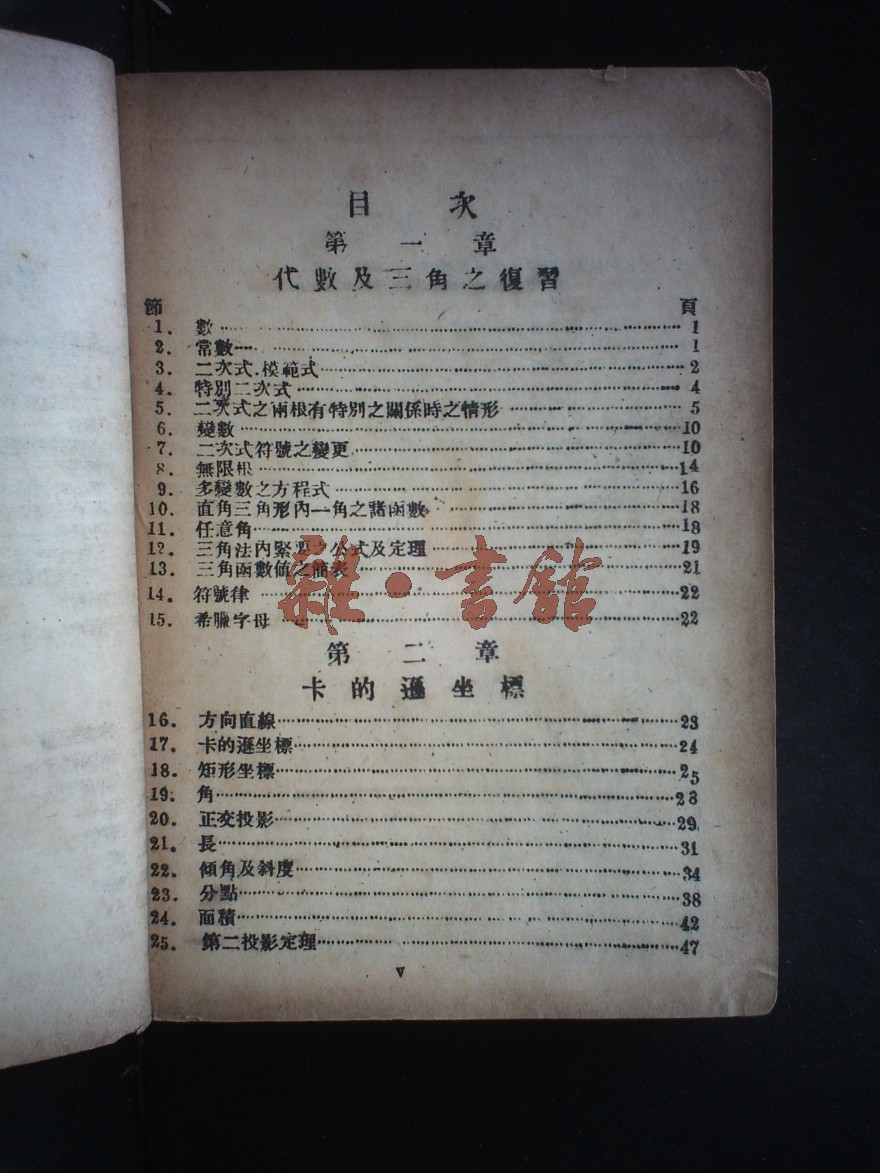 目次
第一章
代數及三角之復習
節 頁
1. 數 1
2. 常數 1
3. 二次式.模範式 2
4. 特別二次式 4
5. 二次式之兩根有特別之關係時之情形 5
6. 變數 10
7. 二次式符號之變更 10
8. 無限根 14
9. 多變數之方程式 16
10. 直角三角形內一角之諸函數 18
11. 任意角 18
12. 三角法內緊要之公式及定理 19
13. 三角函數值之簡表 21
14. 符號律 22
15. 希臘字母 22
雜·書館
第二章
卡的遜坐標
16. 方向直線 23
17. 卡的遜坐標 24
18. 矩形坐標 25
19. 角 28
20. 正交投影 29
21. 長 31
22. 傾角及斜度 34
23. 分點 38
24. 面積 42
25. 第二投影定理 47
V